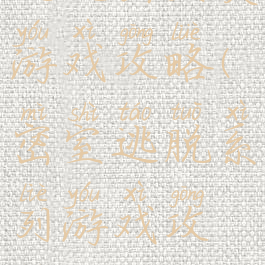 yóu xì gōng lüè
游戏攻略(
mì shì táo tuō xì
密室逃脱系
liè yóu xì gōng
列游戏攻